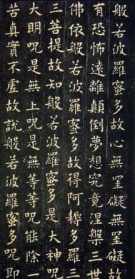 般若波羅蜜多故心無罣礙無罣礙故
有恐怖遠離顛倒夢想究竟涅槃三世
佛依般若波羅蜜多故得阿耨多羅三
三菩提故知般若波羅蜜多是大神咒
大明咒是無上咒是無等等咒能除一
苦真實不虛故說般若波羅蜜多咒即